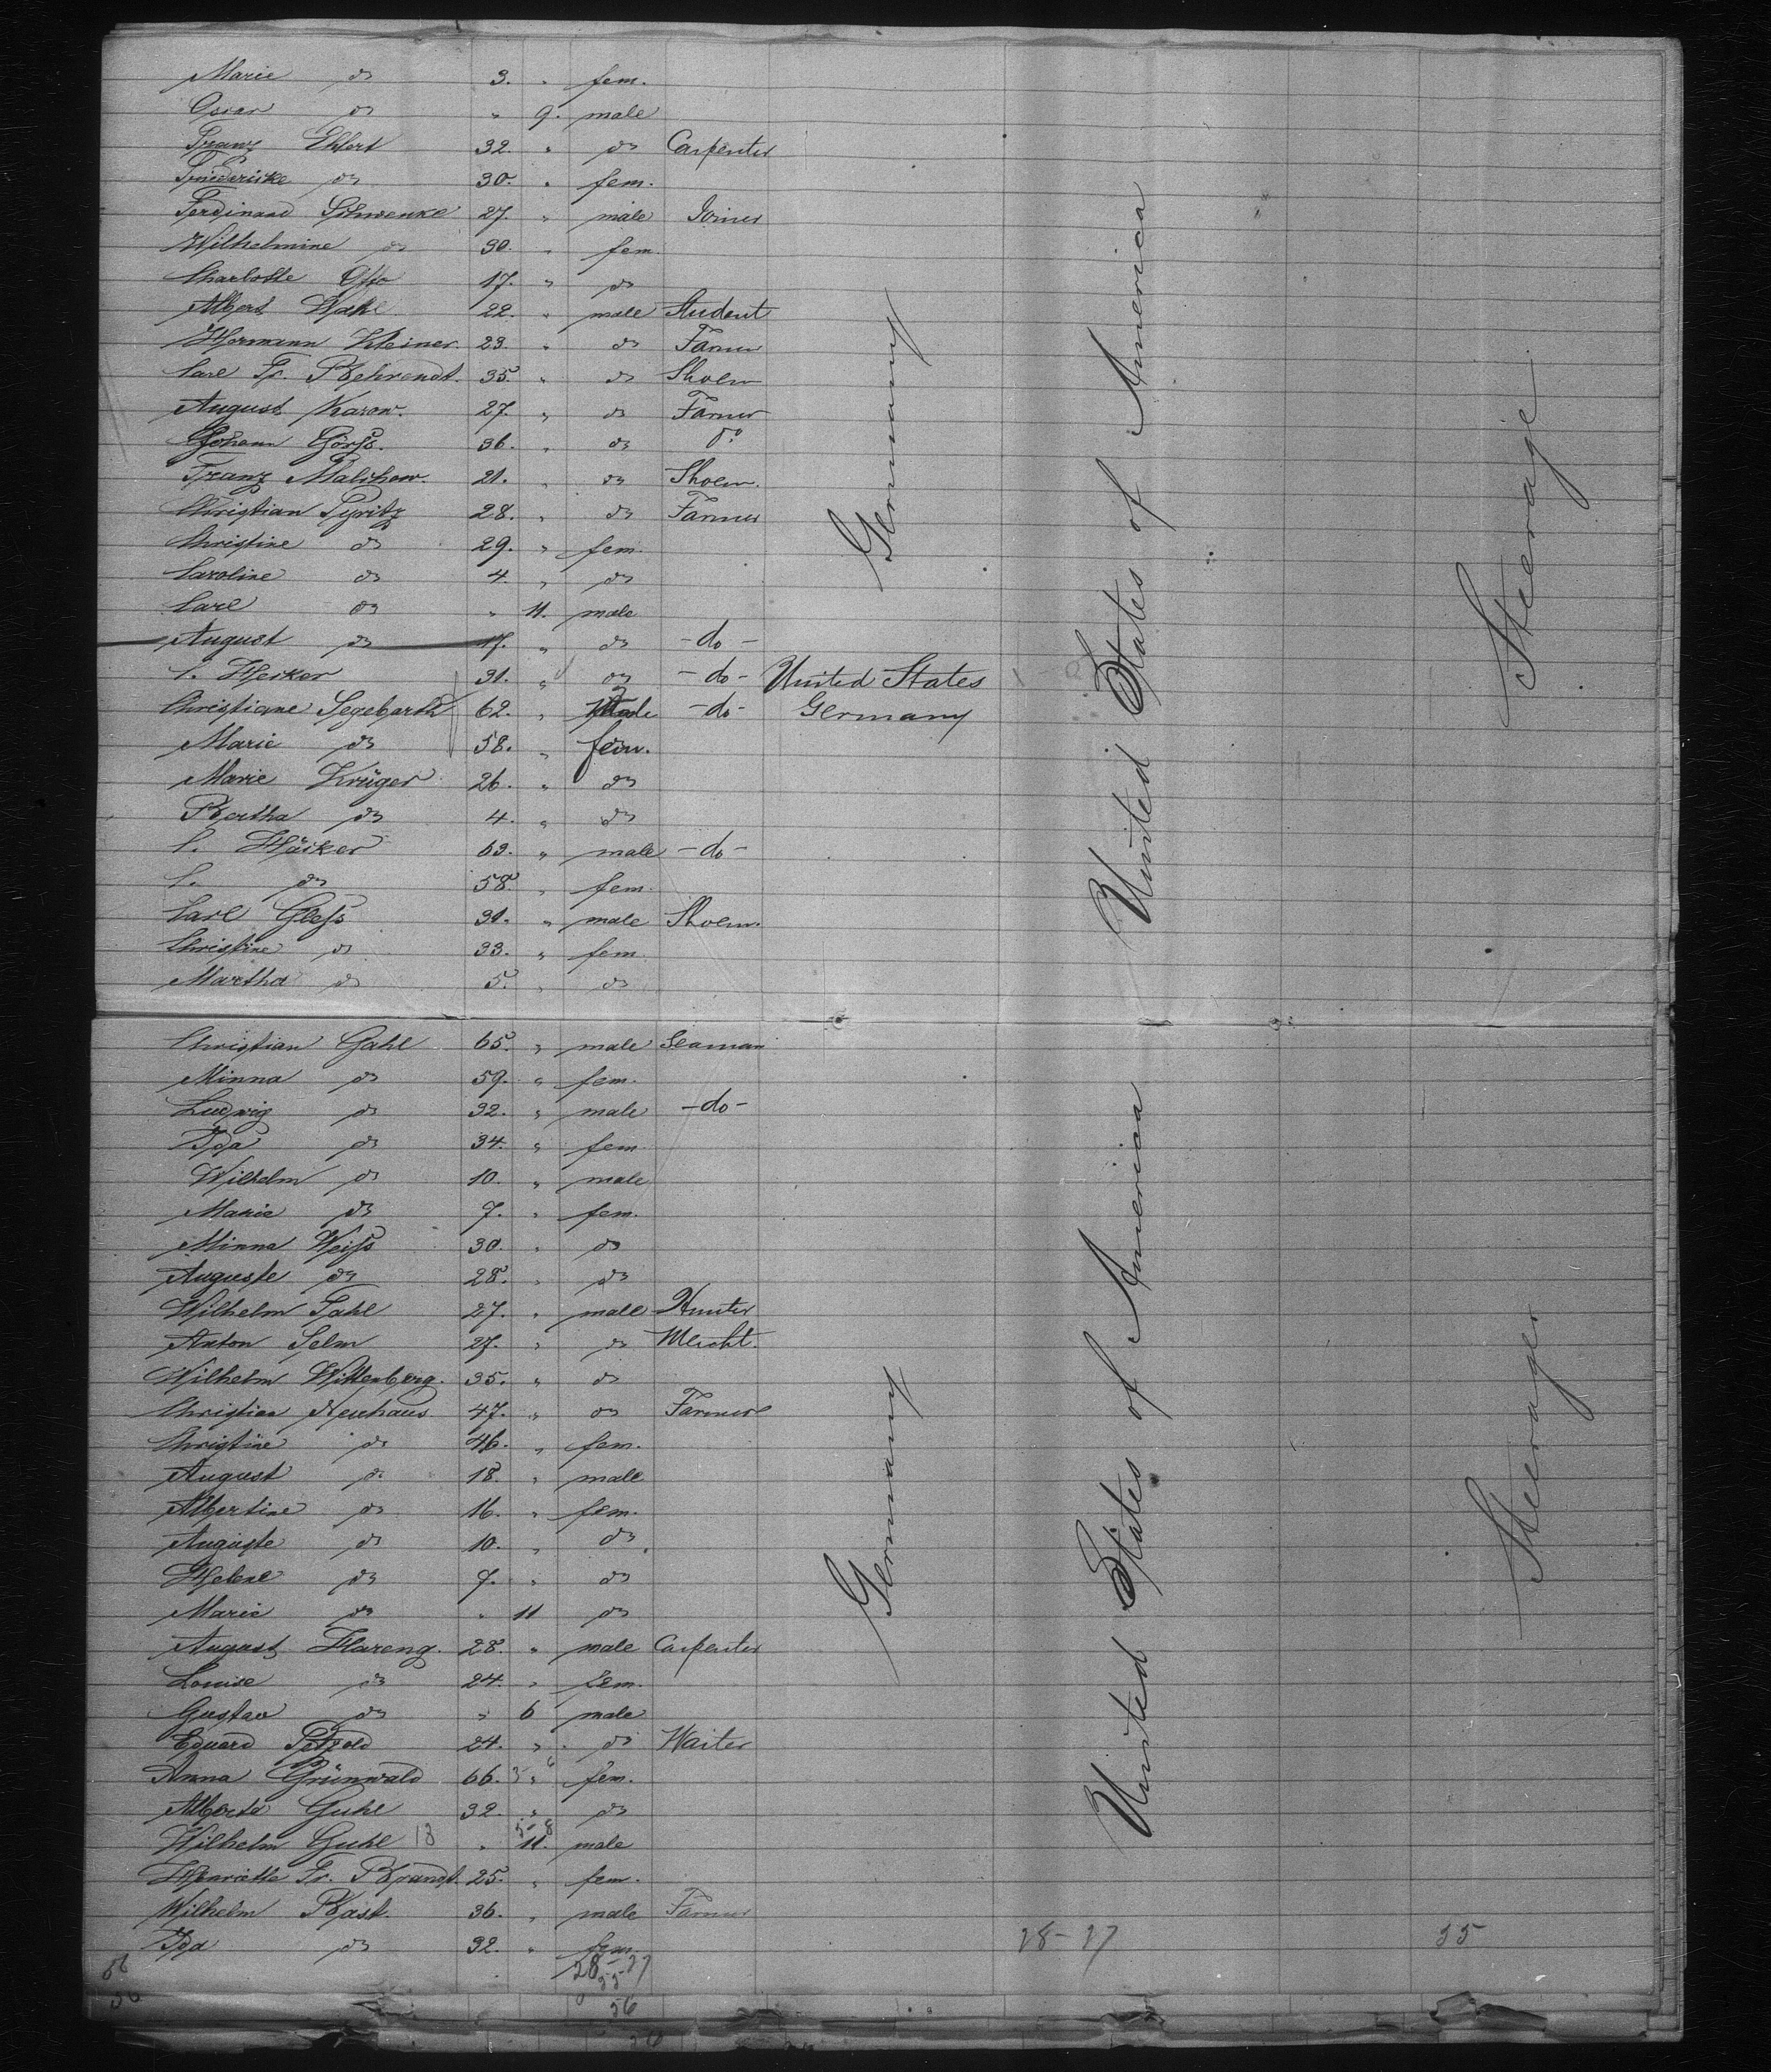 Marie do 3. " fem.
Oscar do " 9. male
Franz Ehlert 32. " do Carpenter
Friederike do 30. " fem.
Ferdinand Schwenke 27. " male Joiner
Wilhelmine do 30. " fem.
Charlotte Otto 17. " do
Albert Wahl 22. " male Student
Hermann Kleiner 23. " do Farmer
Carl Fr. Behrendt. 35. " do Shoem
August Karow. 27. " do Farmer
Johann Görss. 36. " do do
Franz Malchow. 21. " do Shoem.
Christian Pyritz 28. " do Farmer
Christine do 29. " fem.
Caroline do 4. " do
Carl do " 11. male
August do 17. " do - do -
C. Hecker 31. " do - do - United States
Christiane Segebarth 62. " Male - do - Germany
Marie do 58. " fem.
Marie Krüger 26. " do
Bertha do 4. " do
C. Häcker 63. " male - do -
C. do 58. " fem.
Carl Gless 31. " male Shoem.
Christine do 33. " fem.
Martha do 5. " do
Germany
United States of America
Steerage
Christian Gahl 65. " male Seaman
Minna do 59. " fem.
Ludwig do 32. " male - do -
Ida do 34. " fem.
Wilhelm do 10. " male
Marie do 7. " fem.
Minna Weiss 30. " do
Auguste do 28. " do
Wilhelm Fahl 27. " male Hunter
Anton Selm 27. " do Mercht.
Wilhelm Wittenberg. 35. " do
Christian Neuhaus 47. " do Farmer
Christine do 46. " fem.
August do 18. " male
Albertine do 16. " fem.
Auguste do 10. " do
Helene do 7. " do
Marie do " 11 do
August Hareng. 28. " male Carpenter
Louise do 24. " fem.
Gustav do " 6 male
Eduard Petzold 24. " do Waiter
Anna Grünwald 66. " fem.
Alberta Guhl 32. " do
Wilhelm Guhl " 11. male
Henriette Fr. Brandt. 25. " fem.
Wilhelm Bast. 36. " male Farmer
Ida do 32. " fem.
Germany
United States of America
Steerage
28-27 55
28-27
55
56
56